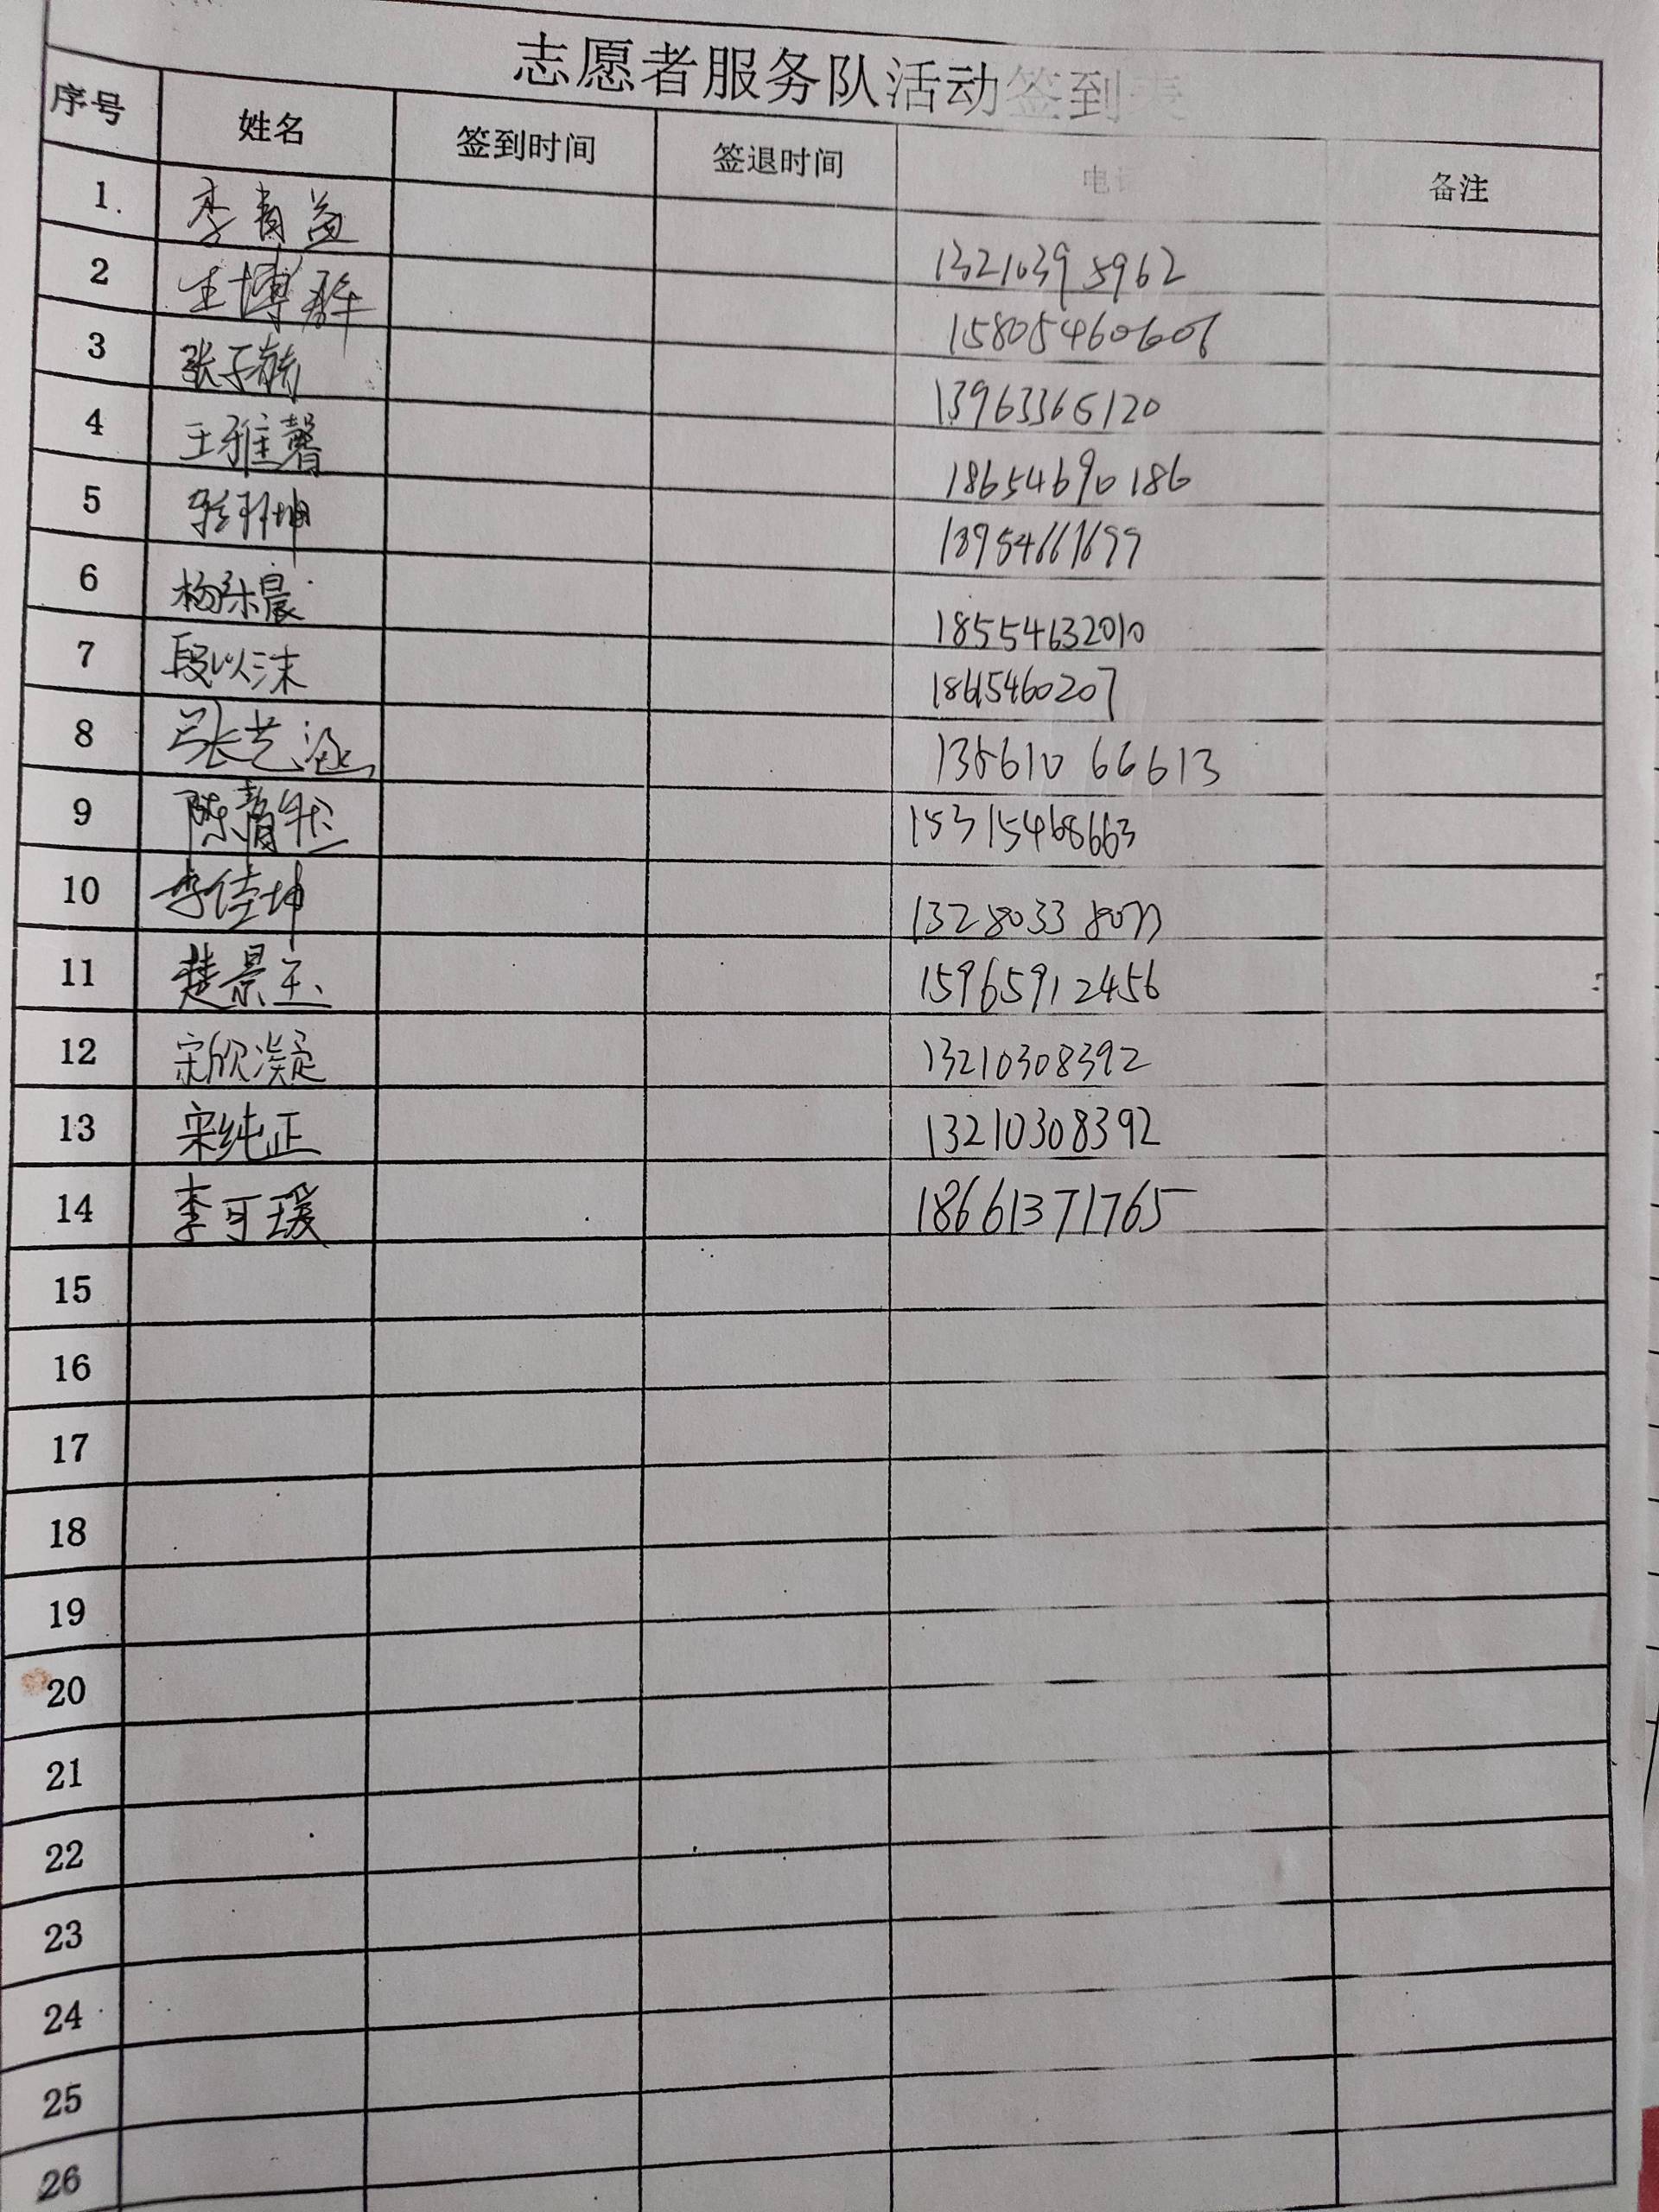 志愿者服务队活动签到表
序号 姓名 签到时间 签退时间 电话 备注
1. 李青益 13210395962
2 王博群 15805460606
3 张子毓 13963365120
4 王雅馨 18654690186
5 13954661699
6 18554632010
7 段以沫 18615460207
8 张艺涵 13561066613
9 陈 15315468663
10 李佳坤 13280338077
11 楚景玉 15965912456
12 宋欣凝 13210308392
13 宋纯正 13210308392
14 李可瑗 18661371765
15
16
17
18
19
20
21
22
23
24
25
26